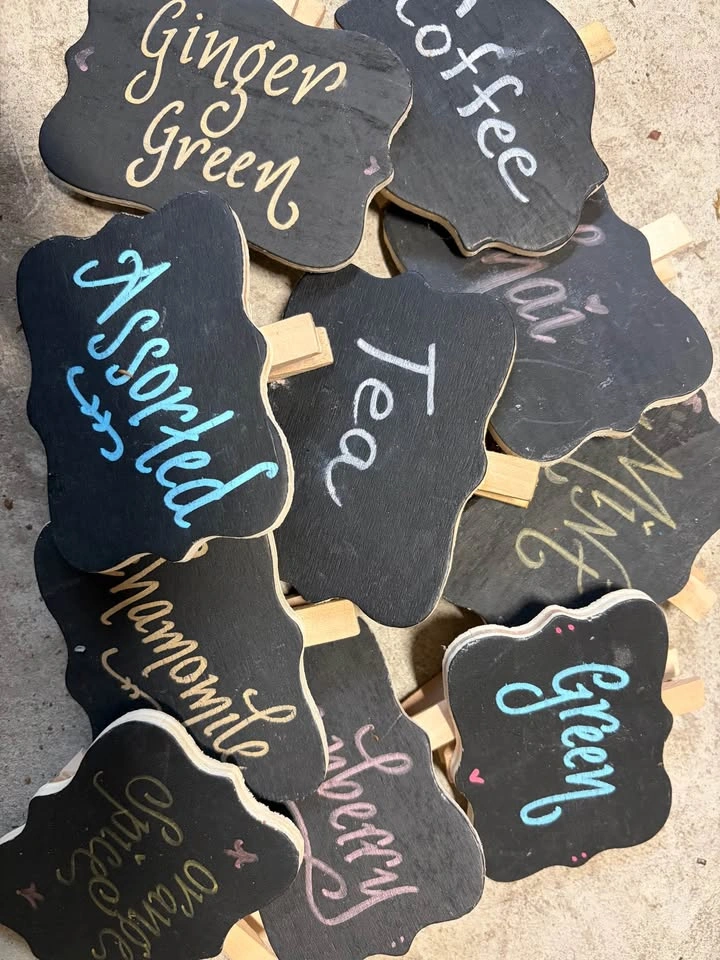 Ginger
Green
Coffee
Assorted
Tea
hai
Mint
hamomile
Green
nberry
Orange
Spice